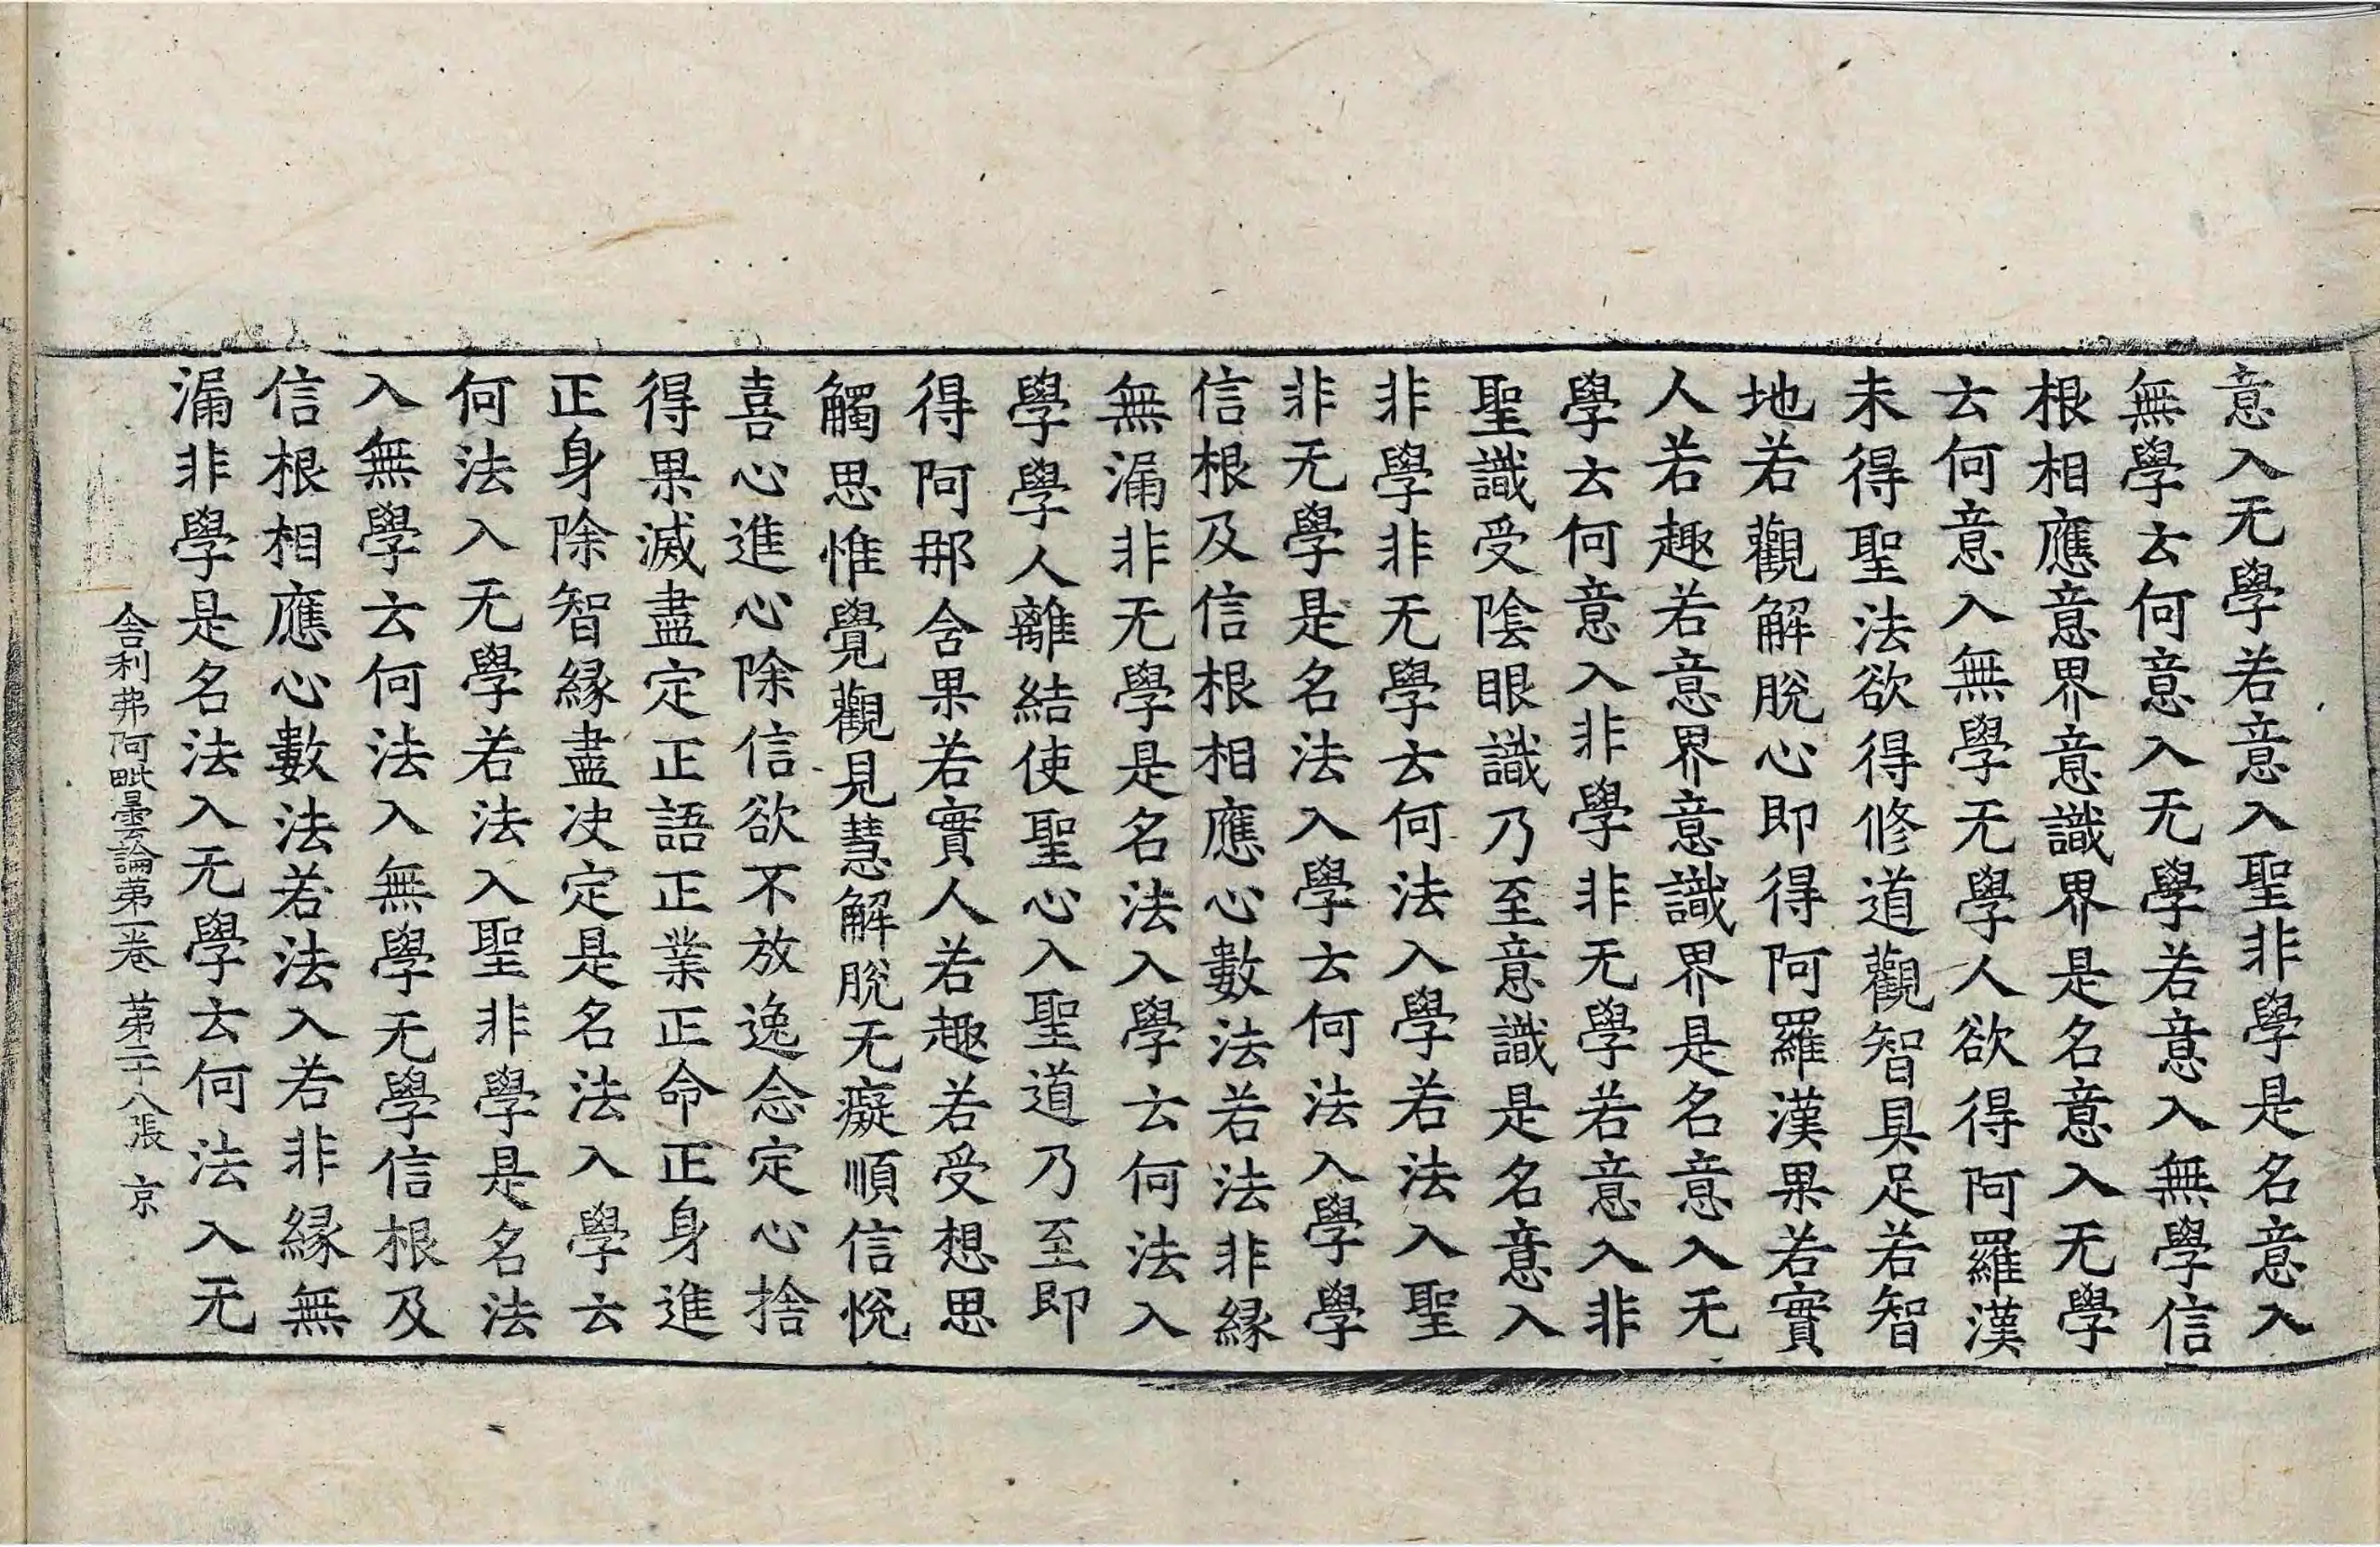 意入无學若意入聖非學是名意入
無學云何意入无學若意入無學信
根相應意界意識界是名意入无學
云何意入無學无學人欲得阿羅漢
未得聖法欲得修道觀智具足若智
地若觀解脫心即得阿羅漢果若實
人若趣若意界意識界是名意入无
學云何意入非學非无學若意入非
聖識受陰眼識乃至意識是名意入
非學非无學云何法入學若法入聖
非无學是名法入學云何法入學學
信根及信根相應心數法若法非緣
無漏非无學是名法入學云何法入
學學人離結使聖心入聖道乃至即
得阿那含果若實人若趣若受想思
觸思惟覺觀見慧解脫无癡順信悅
喜心進心除信欲不放逸念定心捨
得果滅盡定正語正業正命正身進
正身除智緣盡决定是名法入學云
何法入无學若法入聖非學是名法
入無學云何法入無學无學信根及
信根相應心數法若法入若非緣無
漏非學是名法入无學云何法入无
舍利弗阿毗曇論第一卷 第二十八張 京